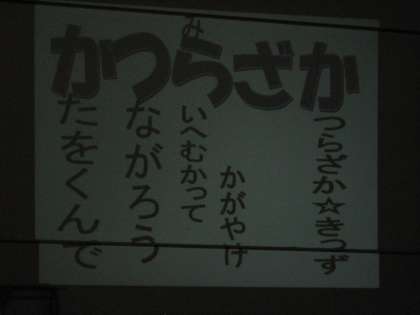 み
かつらざか
たをくんで
ながろう
いへむかって
かがやけ
つらざか☆きっず